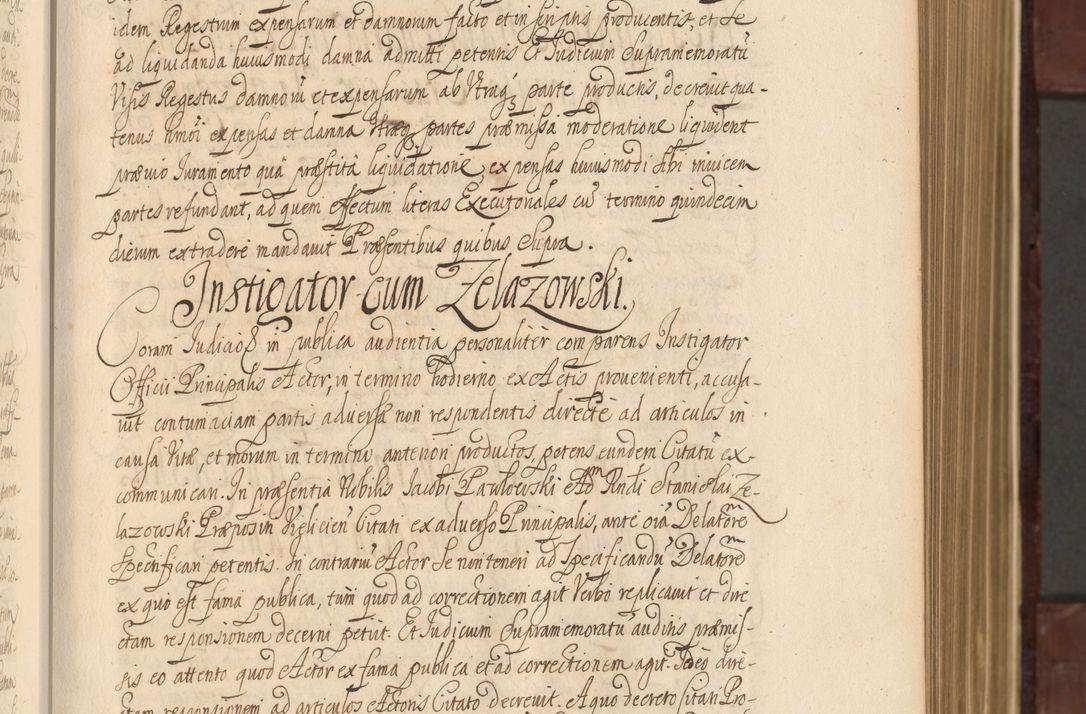 idem Regestrum expensarum et damnorum facto et in scriptis producentis, et se
ad liquidanda huiusmodi damna admitti petentis Et Iudicium Supramemoratũ
Visis Regestris damnorũ et expensarum ab Utraq; parte productis, decrevit qua-
tenus hmõi expensas et damna Utraq; partes præmissa moderatione liquident
prævio Iuramento qua præstita liquidatione expensas huiusmodi sibi invicem
partes refundant, ad quem effectum literas Executoriales cũ termino quindecim
dierum extradere mandavit Præsentibus quibus Supra.
Instigator cum Zelazowski.
Coram Iudicio in publica audientia personaliter comparens Instigator
Officii Principalis Actor, in termino hodierno ex Actis provenienti, accusa-
vit contumaciam partis adversæ non respondentis directe ad articulos in
causa Vitæ, et morum in termini anteriori productos, petens eundem Citatũ ex-
communicari. In præsentia Nobilis Iacobi Pawłowski Adm Rndi Stanislai Ze-
lazowski Præpositi Citati ex adverso Principalis, ante oĩa Delatorem
specificari petentis. In contrariũ Actor se non teneri ad specificandũ Delatorem
ex quo est fama publica, tum quod ad correctionem agit Verbo replicavit et dire
ctam responsionem decerni petiit. Et Iudicium Supramemoratũ auditis præmis-
sis eo attento quod Actor ex fama publica et ad correctionem agit. Ideo dire-
ctam responsionem ad articulos Actoris Citato decrevit. A quo decreto Citati Pro-